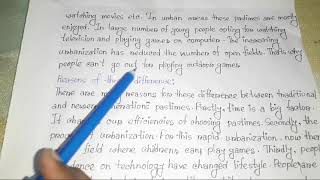 watching movies etc. In urban areas these pastimes are mostly
enjoyed. In large number of young people opting for watching
television and playing games on computer. The increasing
urbanization has reduced the number of open fields. That's why
people can't go out for playing outdoor games.
Reasons of the difference:
There are many reasons for these difference between traditional
and newer pastimes. Firstly, time is a big factor.
It our efficiencies of choosing pastimes. Secondly, the
pro of urbanization. For this rapid urbanization, now there
field where childrens can play games. Thirdly, people's
dence on technology have changed lifestyle. People are